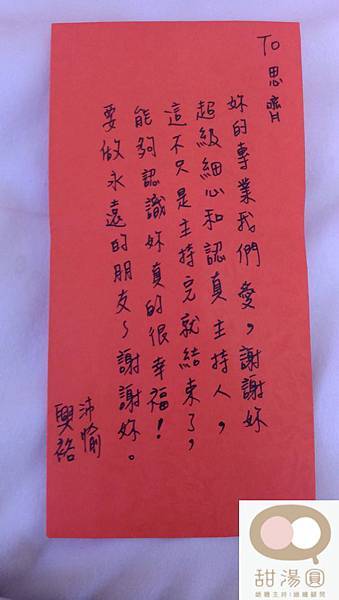 To 思齊
妳的專業我們愛，謝謝妳
超級細心和認真主持人，
這不只是主持完就結束了，
能夠認識妳真的很幸福！
要做永遠的朋友～謝謝妳。
沛愉
興裕
甜湯圓
婚禮主持|婚禮顧問